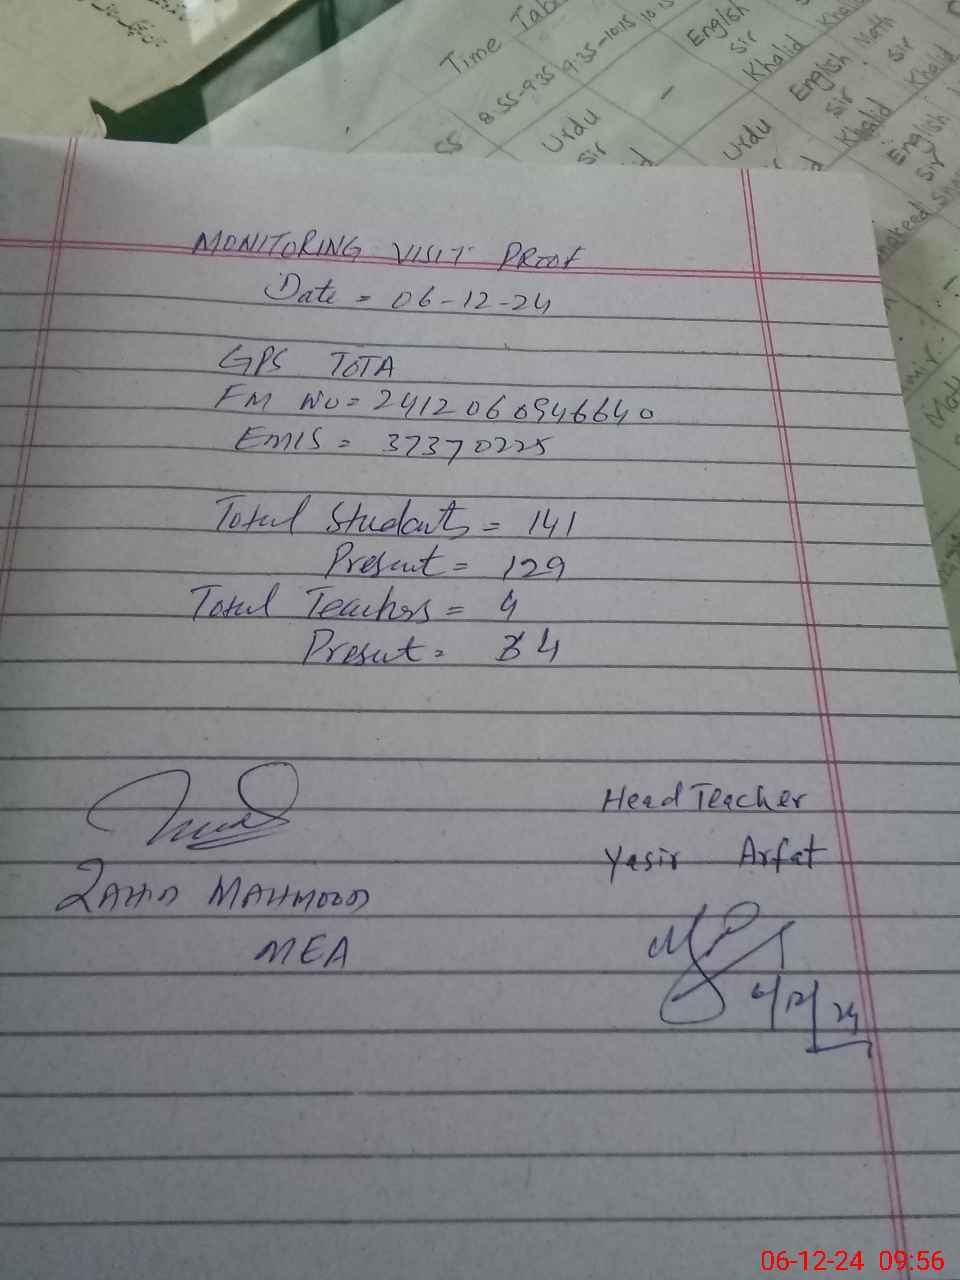 Time Tab
8:55-9:35 9:35-10:15 10:15
55
Urdu
sir
-
English
sir
Khalid
Urdu
English
sir
Khalid
Math
sir
Khalid
English
sir
MONITORING VISIT PROOF
Date = 06-12-24
GPS TOTA
FM NO= 2412060946640
EMIS = 37370225
Total Students = 141
Present = 129
Total Teachers = 4
Present = 4
ZAHID MAHMOOD
MEA
Head Teacher
Yasir Arfat
6/12/24
06-12-24 09:56